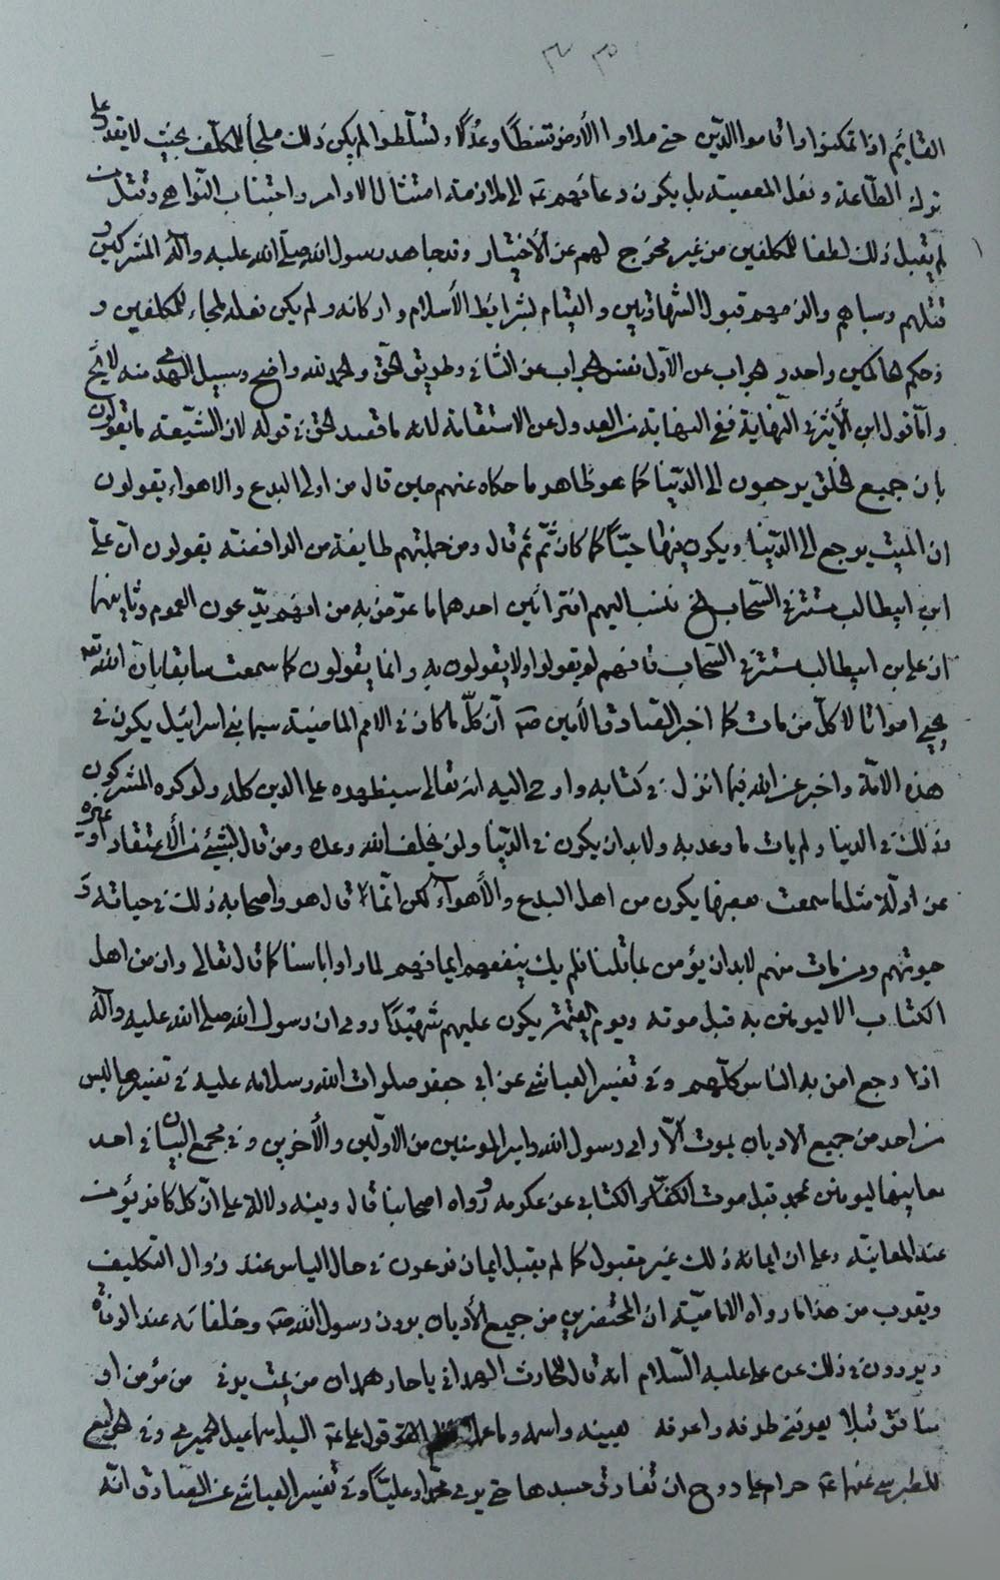 ٣٥
القايم اذا تمكنوا واقاموا الدين حتى ملاوا الأرض قسطًا وعدلًا وتسلّطوا لم يكن ذلك ملجأ للمكلّف بحيث لا يقدر على
ترك الطّاعة وفعل المعصية بل يكون دعاؤهم الى الملازمة امتثالا للاوامر واجتناب النّواهي وقتل من
لم يقبل ذلك لطفا للمكلفين من غير مخرج لهم عن الأختيار وقد جاهد رسول الله صلى الله عليه وآله المشركين و
قتلهم وسباهم والزمهم قبول الشهادتين والقيام بشرايط الأسلام واركانه ولم يكن فعله الجاء للمكلفين و
حكم الحاكمين واحد وجواب عن الأول نفس الجواب عن الثاني وطريق الحق والحمد لله واضح وسبيل الهدى منه لايح
وامّا قول ابن الأثير في النّهاية ففي النهاية من العدول عن الاستقامة لانه ما قصد الحق في قوله لان الشّيعة ما يقولون
بان جميع الخلق يرجعون الى الدّنيا كما هو ظاهر ما حكاه عنهم حين قال من اولى البدع والاهواء يقولون
ان الميت يرجع الى الدّنيا ويكون فيها حيّاً كما كان ثمّ ثم قال ومن جملتهم طايفة من الرافضة يقولون انّ عليّ
ابن ابيطالب مستتر في السّحاب الخ فنسب اليهم افترائين احدهما ما عرّض به من انهم يدّعون العموم وثانيهما
ان علي بن ابيطالب مستتر في السّحاب فانهم لم يقولوا ولا يقولون به وانما يقولون كما سمعت سابقا بان الله تعه
يحيي امواتا لا كلّ من مات كما اخبر الصادق الأمين صه انّ كلّ ما كان في الامم الماضية سيما بني اسرائيل يكون في
هذه الامّة واخبر عن الله فيما انزل في كتابه واوحى اليه انه تعالى سيظهره على الدين كله ولو كره المشركون
وذلك في الدنيا ولم يات ما وعد به ولا بد ان يكون في الدّنيا ولن يخلف الله وعده ومن قال بشيئ من الأعتقاد او غيره
عن ادلّة مثل ما سمعت بعضها يكون من اهل البدع والأهواء لكن انّما قال هو واصحابه ذلك في حياته و
حيوتهم ومن مات منهم لابد ان يؤمن بما قلنا فلم يك ينفعهم ايمانهم لما راوا باسنا كما قال تعالى وان من اهل
الكتاب الا ليومنن به قبل موته ويوم القيمة يكون عليهم شهيدًا روى ان رسول الله صلى الله عليه وآله
اذا رجع امن به الناس كلّهم وفى تفسير العياشي عن ابي جعفر صلوات الله وسلامه عليه في تفسيرها ليس
من احد من جميع الاديان يموت الّا راى رسول الله وامير المومنين من الاوّلين والأخرين وفي مجمع البيان في احد
معانيها ليومنن بمحمد قبل موت الكتابي عن عكرمه ورواه اصحابنا قال وفيه دلالة على انّ كل كافر يؤمن
عند المعاينة وعلى ان ايمانه ذلك غير مقبول كما لم يقبل ايمان فرعون في حال الياس عند زوال التكليف
ويقرب من هذا ما رواه الاماميّة ان المحتضرين من جميع الأديان يرون رسول الله صه وخلفائه عند الوفاة
ويروون في ذلك عن علي عليه السّلام انه قال للحارث الهمداني يا حار همدان من يمت يرني من مؤمن او
منافق قبلا يعرفني طرفه واعرفه بعينه واسمه وما عملا السيد اسماعيل الحميري وفي الجوامع
للطبرسي عنهما عه حرام على روح ان تفارق جسدها حتى يرى محمّدا وعليّاً وفي تفسير العياشي عن الصادق انّه